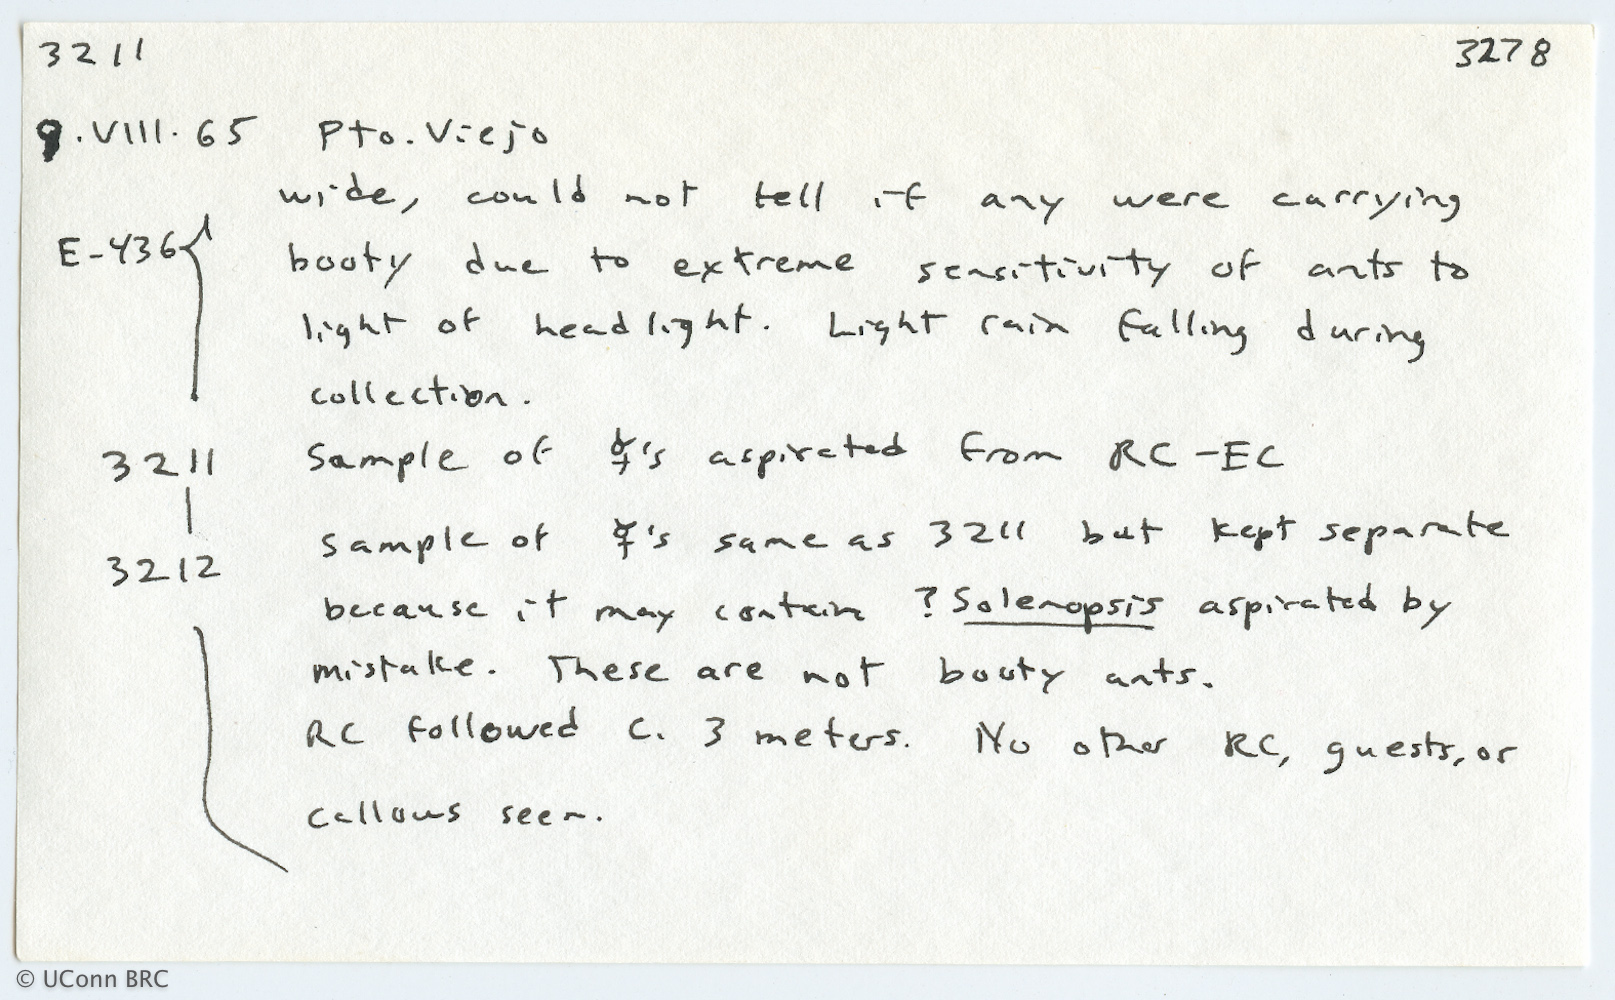 3211 3278
9.VIII.65 Pto. Viejo
wide, could not tell if any were carrying
E-436 booty due to extreme sensitivity of ants to
light of headlight. Light rain falling during
collection.
3211 Sample of ☿'s aspirated from RC-EC
3212 Sample of ☿'s same as 3211 but kept separate
because it may contain ? Solenopsis aspirated by
mistake. These are not booty ants.
RC followed c. 3 meters. No other RC, guests, or
callows seen.
© UConn BRC